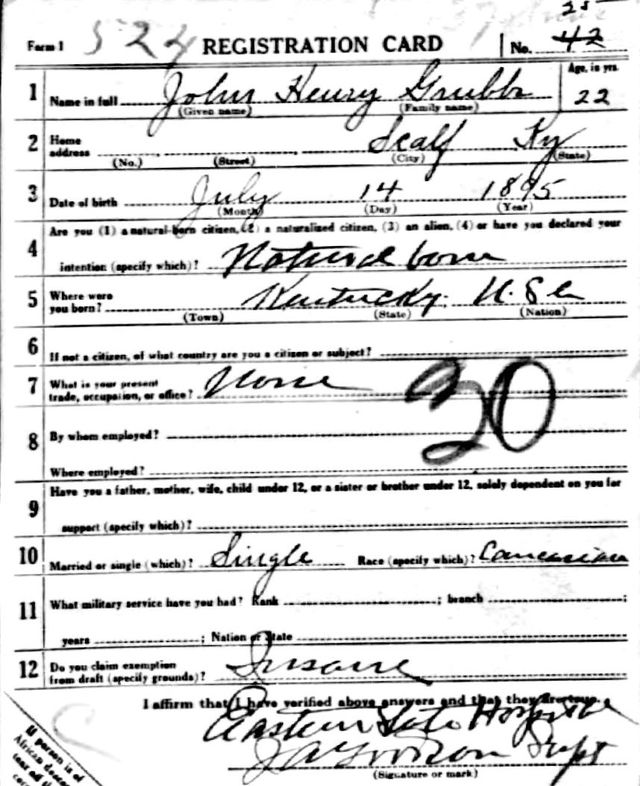 25
Form 1 524 REGISTRATION CARD No. 42
1 Name in full John Henry Grubb Age, in yrs. 22
(Given name) (Family name)
2 Home address Scalf Ky
(No.) (Street) (City) (State)
3 Date of birth July 14 1895
(Month) (Day) (Year)
4 Are you (1) a natural-born citizen, (2) a naturalized citizen, (3) an alien, (4) or have you declared your
intention (specify which)? Natural born
5 Where were you born? Kentucky U.S.a
(Town) (State) (Nation)
6 If not a citizen, of what country are you a citizen or subject?
7 What is your present trade, occupation, or office? None
30
8 By whom employed?
Where employed?
9 Have you a father, mother, wife, child under 12, or a sister or brother under 12, solely dependent on you for
support (specify which)?
10 Married or single (which)? Single Race (specify which)? Caucasian
11 What military service have you had? Rank ; branch ;
years ; Nation or State
12 Do you claim exemption from draft (specify grounds)? Insane
I affirm that I have verified above answers and that they are true.
Eastern State Hospital
Supt
(Signature or mark)
If person is of
African